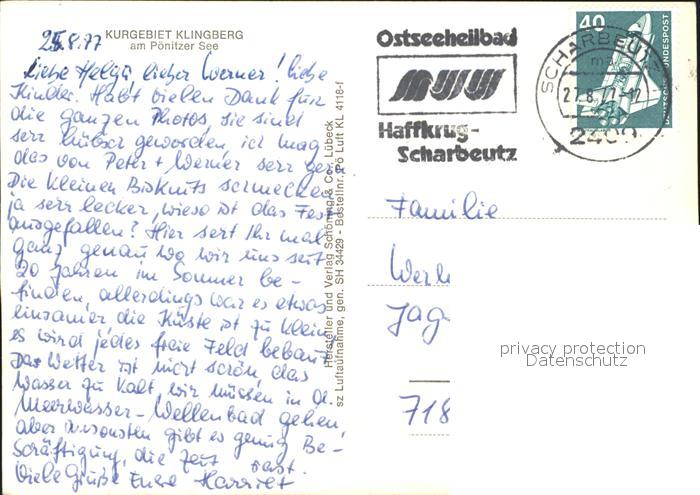 25.8.77
KURGEBIET KLINGBERG
am Pönitzer See
Liebe Helga, lieber Werner! liebe
Kinder. Habt vielen Dank für
die ganzen Photos, sie sind
serr hübsch geworden, ich mag
das von Peter + Werner serr gern
Die kleinen Biskuits schmecken
ja serr lecker, wieso ist das Fest
ausgefallen? Hier seht Ihr mal
ganz genau wo wir uns seit
20 Jahren im Sommer be-
finden, allerdings war es etwas
einsamer die Küste ist zu klein
es wird jedes freie Feld bebaut
Das Wetter ist nicht schön, das
Wasser zu kalt, wir müssen in d.
Meerwasser-Wellenbad gehen,
aber ansonsten gibt es genug Be-
schäftigung, die Zeit rast.
Viele Grüße Eure Harriet
Hersteller und Verlag Schöning & Co., Lübeck
sz Luftaufnahme, gen. SH 34429 - Bestellnr. Pö Luft KL 4118-f
Ostseeheilbad
Haffkrug-
Scharbeutz
SCHARBEUTZ
27.8.77-12
2409
40
DEUTSCHE BUNDESPOST
Familie
Wer
Jag
718
privacy protection
Datenschutz